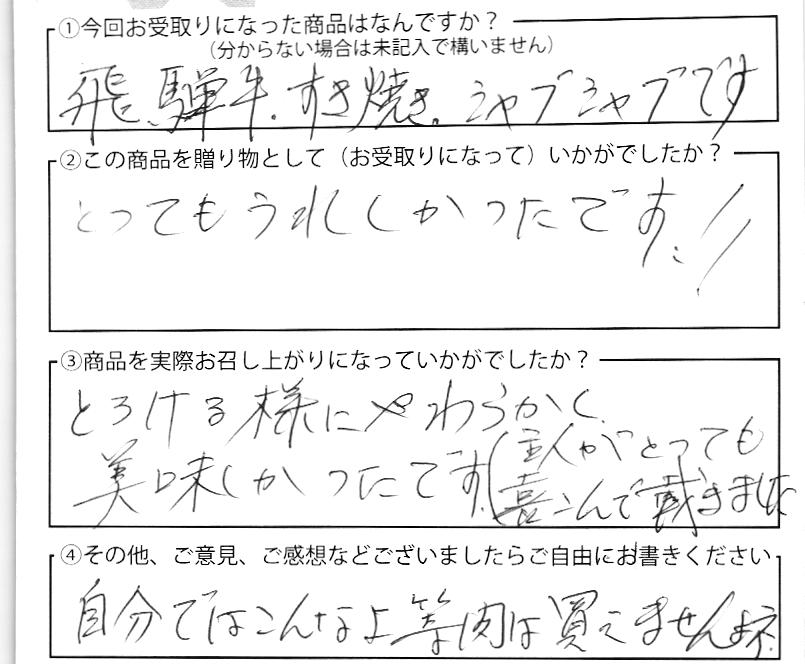 ①今回お受取りになった商品はなんですか？
（分からない場合は未記入で構いません）
飛騨牛.すき焼き.シャブシャブです
②この商品を贈り物として（お受取りになって）いかがでしたか？
とってもうれしかったです.!!
③商品を実際お召し上がりになっていかがでしたか？
とろける様にやわらかく
美味しかったです.(主人がとっても
喜こんで戴きました
④その他、ご意見、ご感想などございましたらご自由にお書きください
自分ではこんな上等な肉は買えませんよネ.